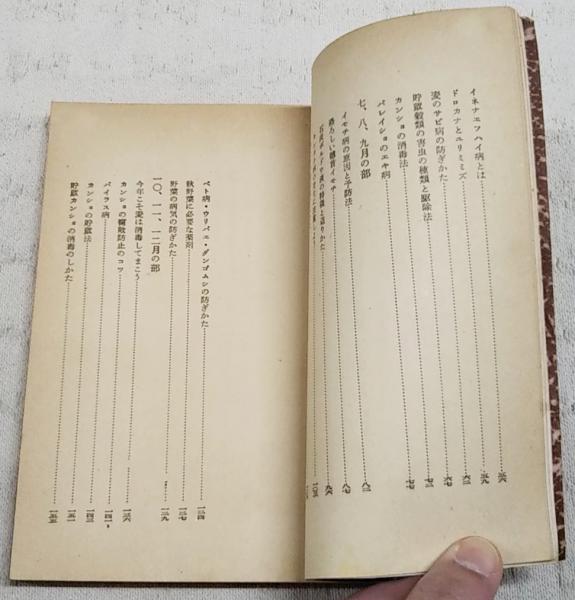 イネナエフハイ病とは……五六
ドロカナとユリミミズ……五九
麦のサビ病の防ぎかた……六三
貯蔵穀類の害虫の種類と駆除法……六七
カンショの消毒法……七二
バレイショのエキ病……七七
七、八、九月の部……八三
イモチ病の原因と予防法……八七
恐ろしい穂首イモチ……九六
ベト病・ウリバエ・ダンゴムシの防ぎかた……一二四
秋野菜に必要な薬剤……一二七
野菜の病気の防ぎかた……一二九
一〇、一一、一二月の部
今年こそ麦は消毒してまこう……一三六
カンショの腐敗防止のコツ
バイラス病……一四一
カンショの貯蔵法……一四三
貯蔵カンショの消毒のしかた……一五一
一五五